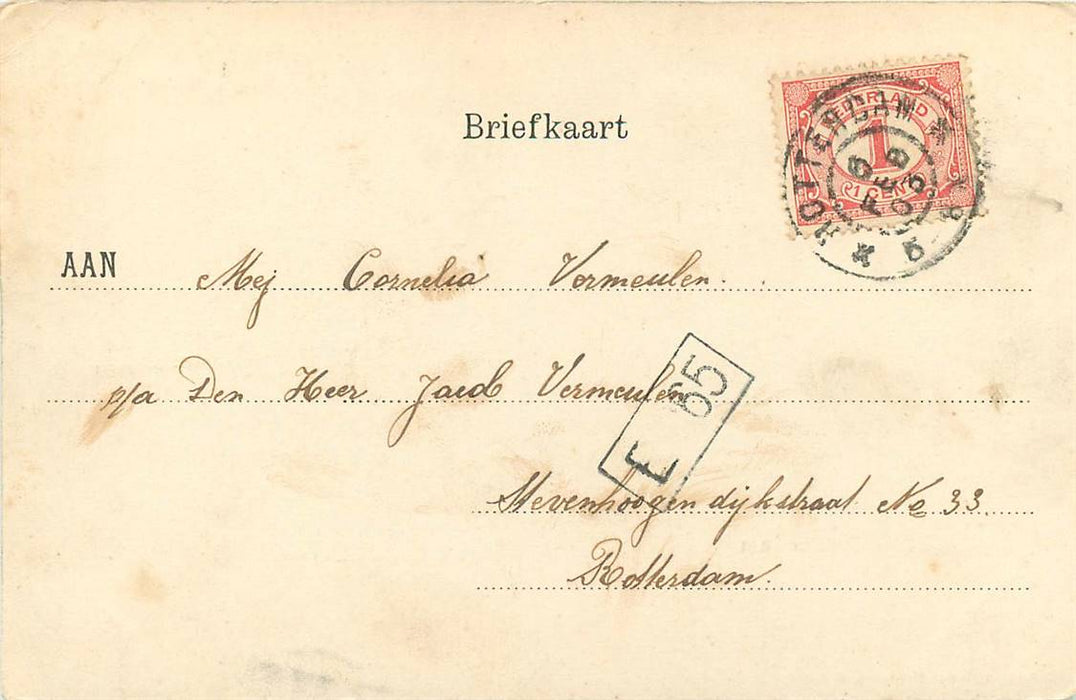 Briefkaart
NEDERLAND
1
1 CENT
ROTTERDAM
6 FEB 03
AAN Mej Cornelia Vermeulen.
p/a Den Heer Jacob Vermeulen
E 65
No 33.
Rotterdam.